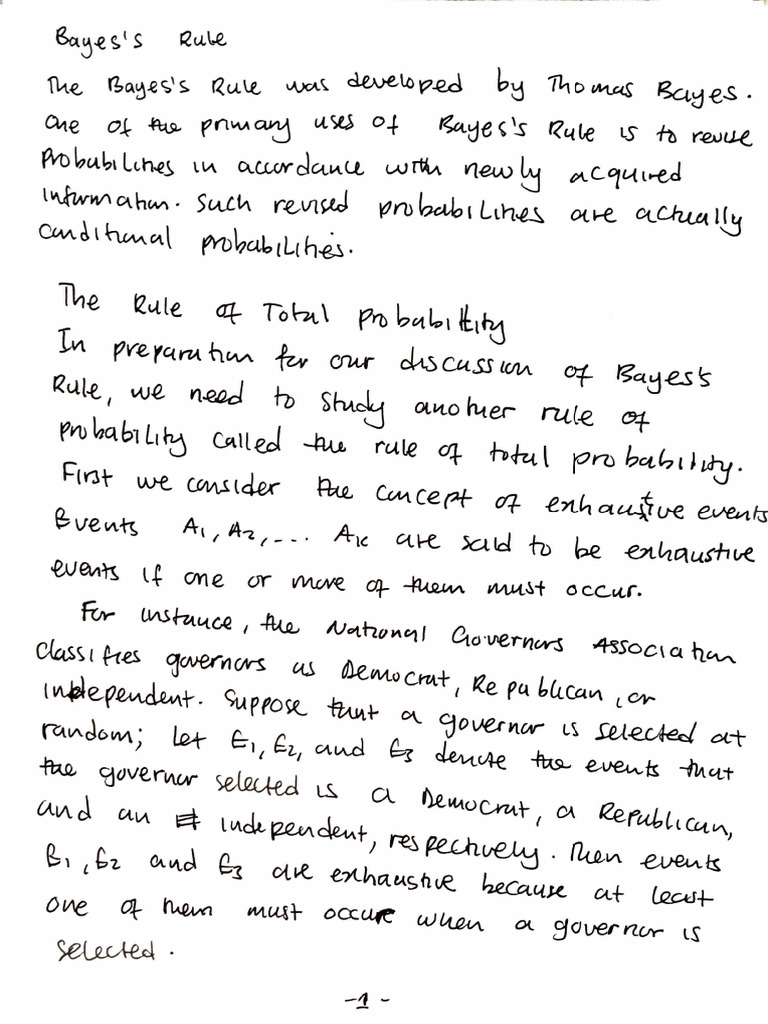 Bayes's Rule
The Bayes's Rule was developed by Thomas Bayes.
One of the primary uses of Bayes's Rule is to revise
probabilities in accordance with newly acquired
information. Such revised probabilities are actually
conditional probabilities.
The Rule of Total Probability
In preparation for our discussion of Bayes's
Rule, we need to study another rule of
probability called the rule of total probability.
First we consider the concept of exhaustive events
Events A1, A2, ... AK are said to be exhaustive
events if one or more of them must occur.
For instance, the National Governors Association
classifies governors as Democrat, Republican, or
independent. Suppose that a governor is selected at
random; let E1, E2, and E3 denote the events that
the governor selected is a Democrat, a Republican,
and an independent, respectively. Then events
E1, E2 and E3 are exhaustive because at least
one of them must occur when a governor is
selected.
-1-